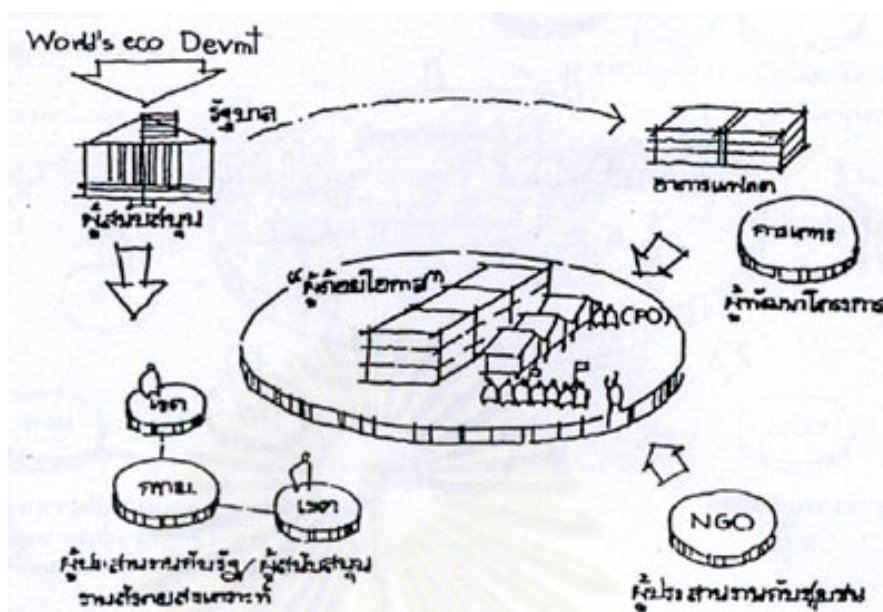 World's eco Devm't
รัฐบาล
ผู้สนับสนุน
อาคารแฟลต
การเคหะ
ผู้พัฒนาโครงการ
"ผู้ด้อยโอกาส"
(CPO)
เขต
กทม.
เขต
ผู้ประสานงานกับรัฐ/ผู้สนับสนุน
งานสังคมสงเคราะห์
NGO
ผู้ประสานงานกับชุมชน